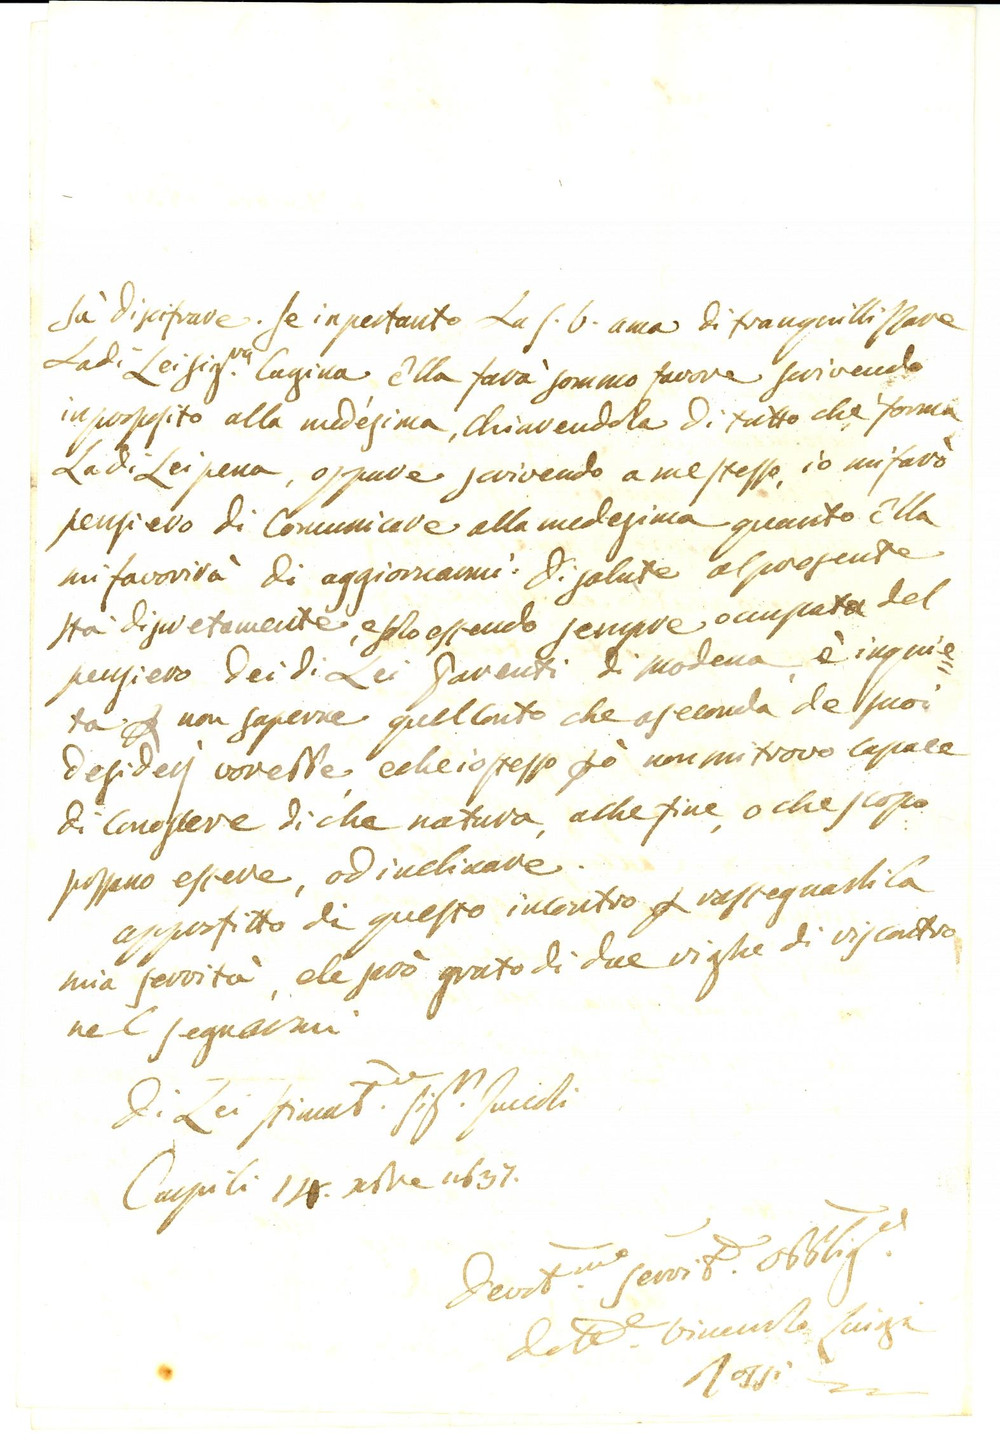 sà discifrare. Se inpertanto La S. V. ama di tranquillizzare
La di Lei Sig.ra Cugina Ella farà sommo favore scrivendo
in proposito alla medésima, chiarendola di tutto che forma
La di Lei pena, oppure scrivendo a me stesso, io mi farò
pensiero di Comunicare alla medesima quanto Ella
mi favorirà di aggiornarmi. Di salute al presente
stà discretamente, e solo essendo sempre occupata del
pensiero dei di Lei Parenti di Modena, è inquie=
ta non saperne quel Conto che a seconda de suoi
desiderj vorebbe, e che io stesso però non mi trovo Capace
di Conoscere di che natura, a che fine, o che scopo
possano essere, od inclinare.
approfitto di questo incontro rassegnarli la
mia servità, e le sarò grato di due righe di riscontro
nel segnarmi
Di Lei Stimat.me Sig.
14. 1837.
Devot.me Servit.e Obblig.
Dott.e Luigi
Rossi